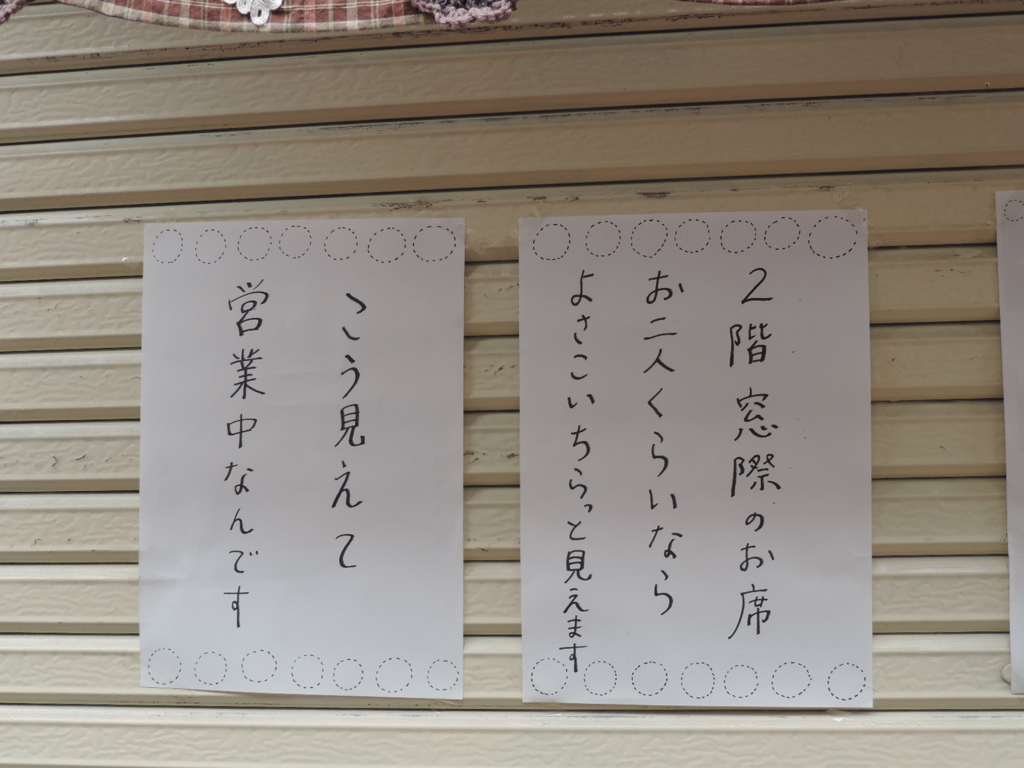 2階窓際のお席
お二人くらいなら
よさこいちらっと見えます
こう見えて
営業中なんです